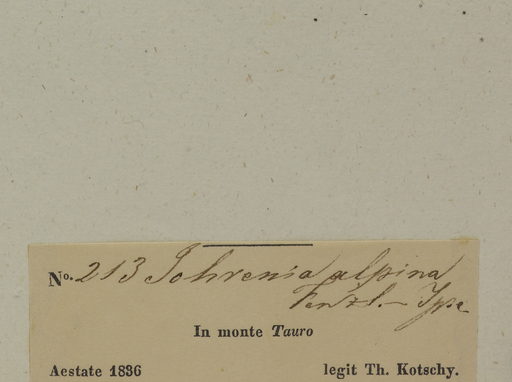 No. 213 Johrenia alpina
Fenzl. — Type
In monte Tauro
Aestate 1836 legit Th. Kotschy.